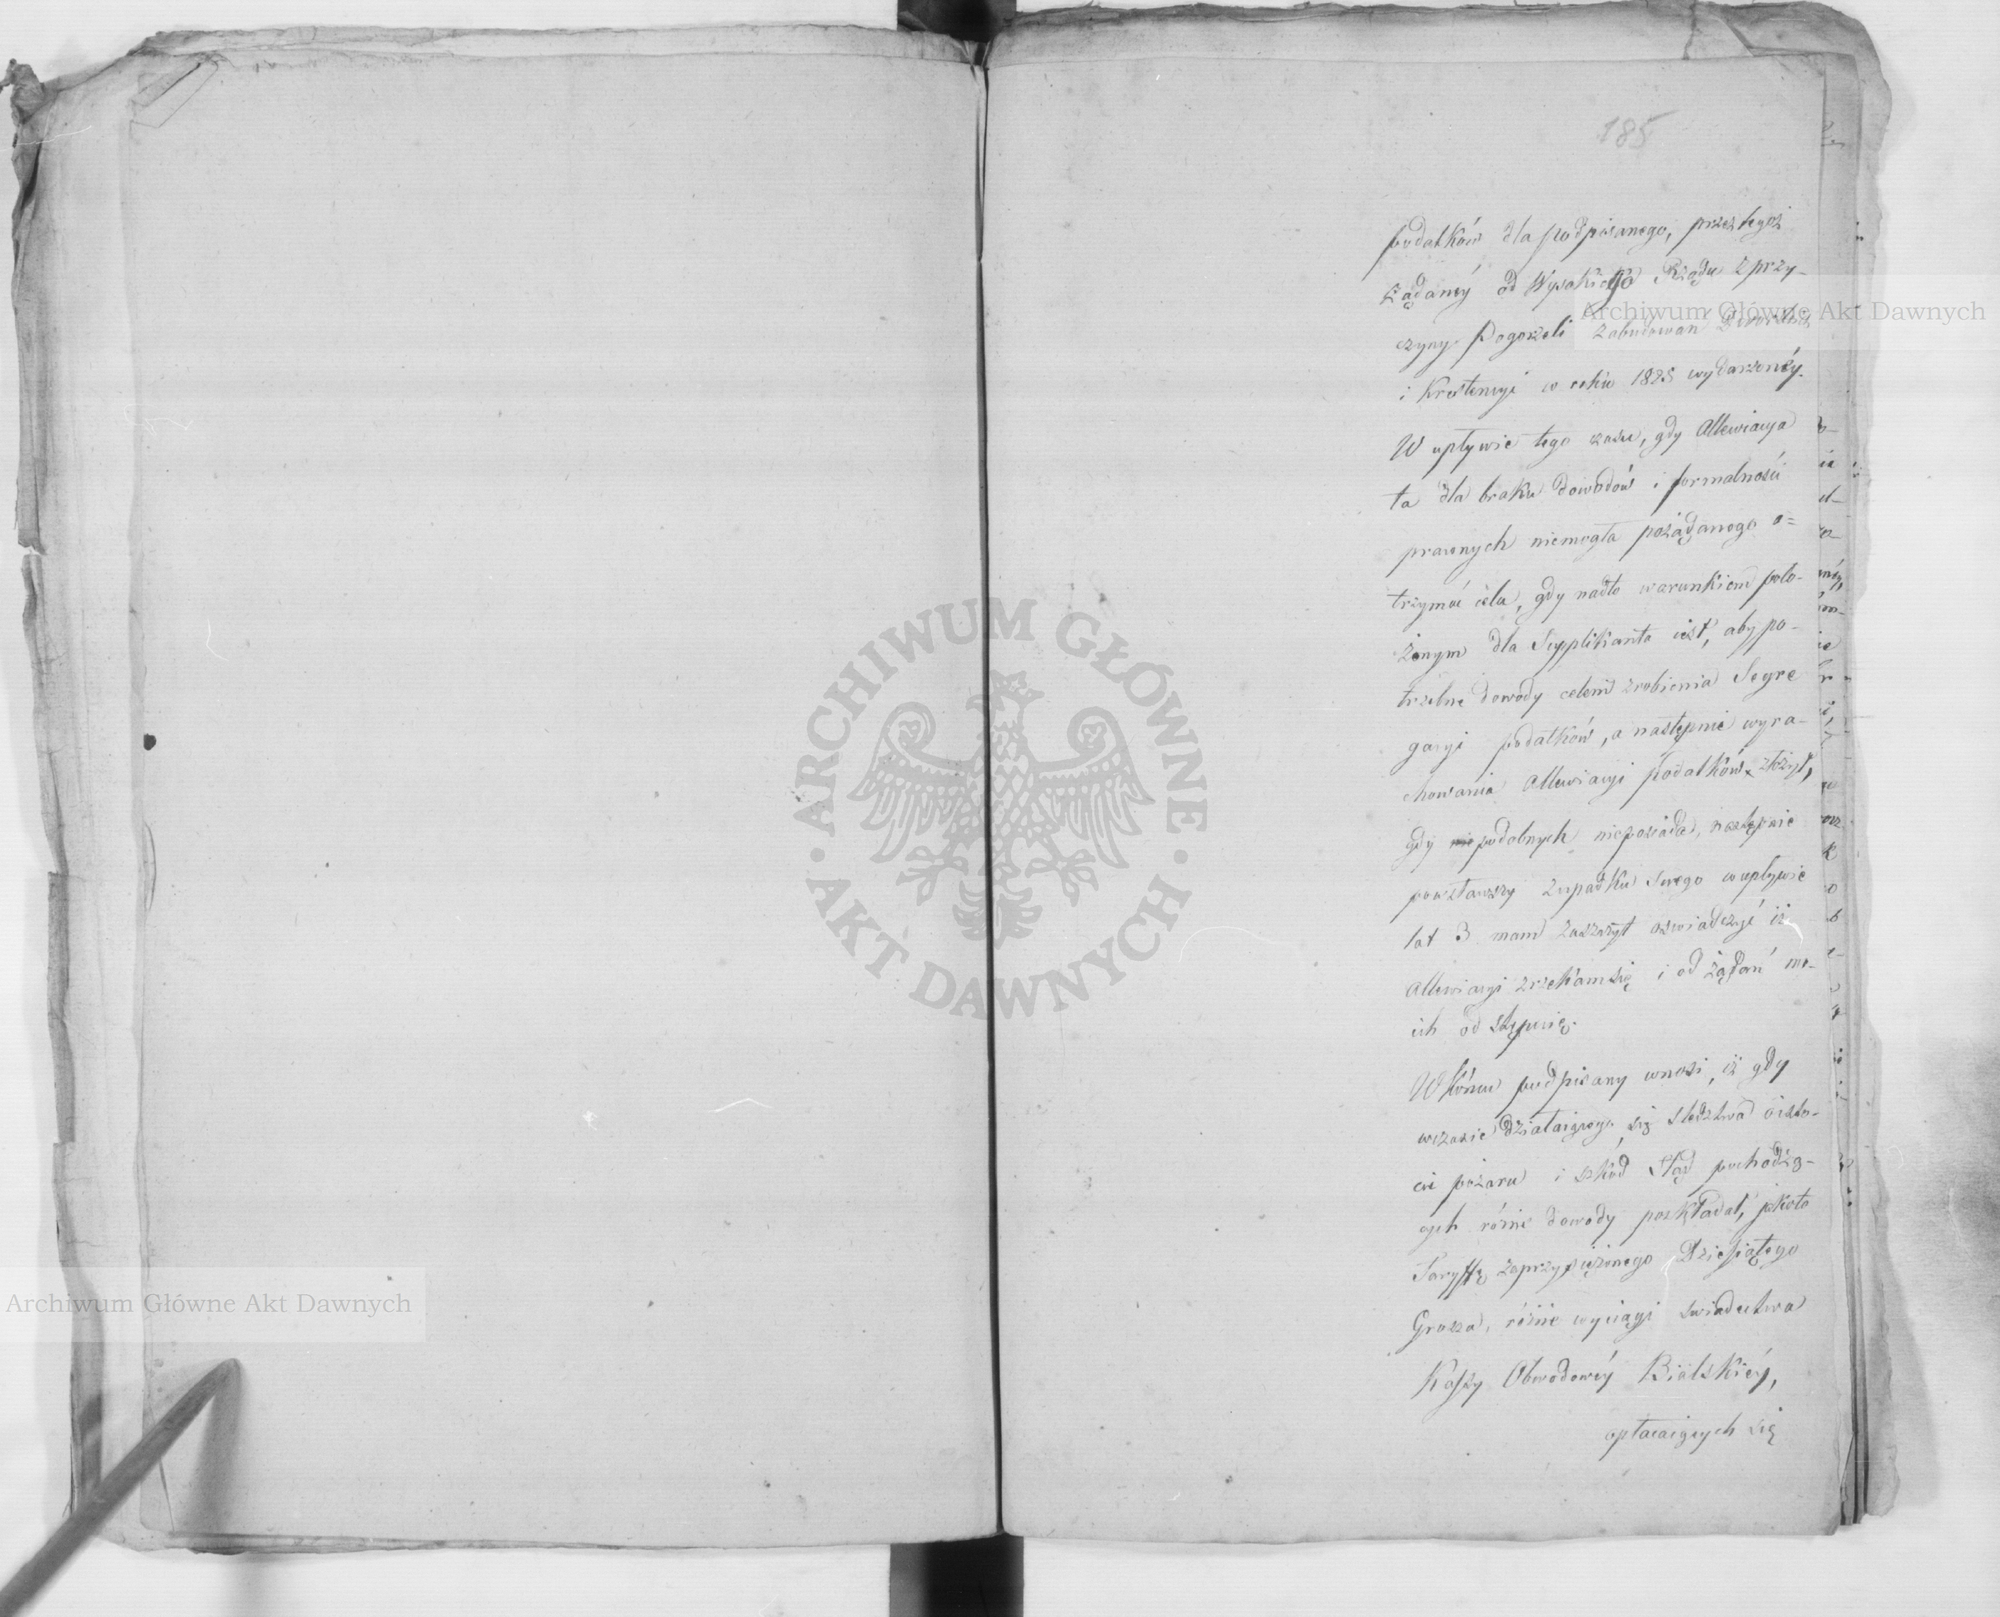 185
podatków dla podpisanego, przez tegoż
żądanéy od Wysokiego Rządu z przy-
czyny Pogorzeli zabudowań Dworskich
i Krestencyi w roku 1825 wydarzonéy.
W upływie tego czasu, gdy Allewiacya
ta dla braku dowodów i formalności
prawnych niemogła pożądanego o=
trzymać celu, gdy nadto warunkiem poło-
żonym dla Supplikanta iest, aby po-
trzebne dowody celem zrobienia Segre
gacyi podatków, a następnie wyra-
chowania Allewiacyi podatków złożył,
gdy podobnych nieposiada, następnie
powstawszy z upadku swego w upływie
lat 3 mam zaszczyt oświadczyć iż
Allewiacyi zrzekam się i od żądań mo-
ich odstępuię.
W końcu podpisany wnosi, iż gdy
w czasie działaiącego się śledztwa o isto-
cie pożaru i szkód stąd pochodzą-
cych różne dowody poskładał, jakoto
Taryffę zaprzysiężonego Dziesiątego
Grosza, różne wyciągi świadectwa
Kassy Obwodowéy Bialskiéy,
opłacaiących się
ARCHIWUM GŁÓWNE
AKT DAWNYCH
Archiwum Główne Akt Dawnych
Archiwum Główne Akt Dawnych